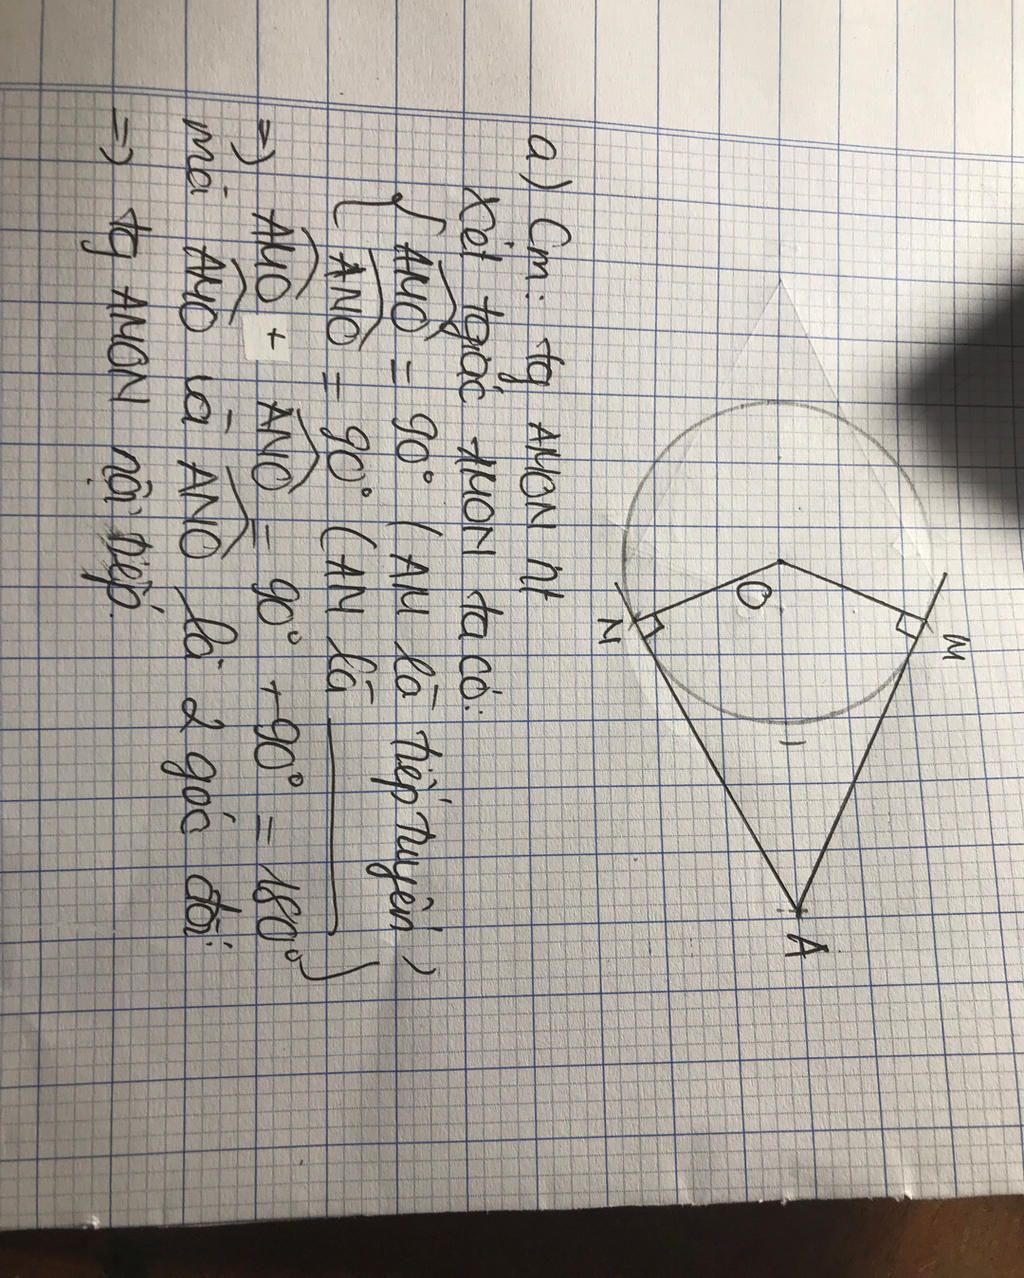 M
O
N
A
a) Cm: tg AMON nt
Xét tgiác AMON ta có:
{ AMO = 90° (AM là tiếp tuyến)
{ ANO = 90° (AN là ———)
=) AMO + ANO = 90° + 90° = 180°
mà AMO và ANO là 2 góc đối
=) tg AMON nội tiếp.